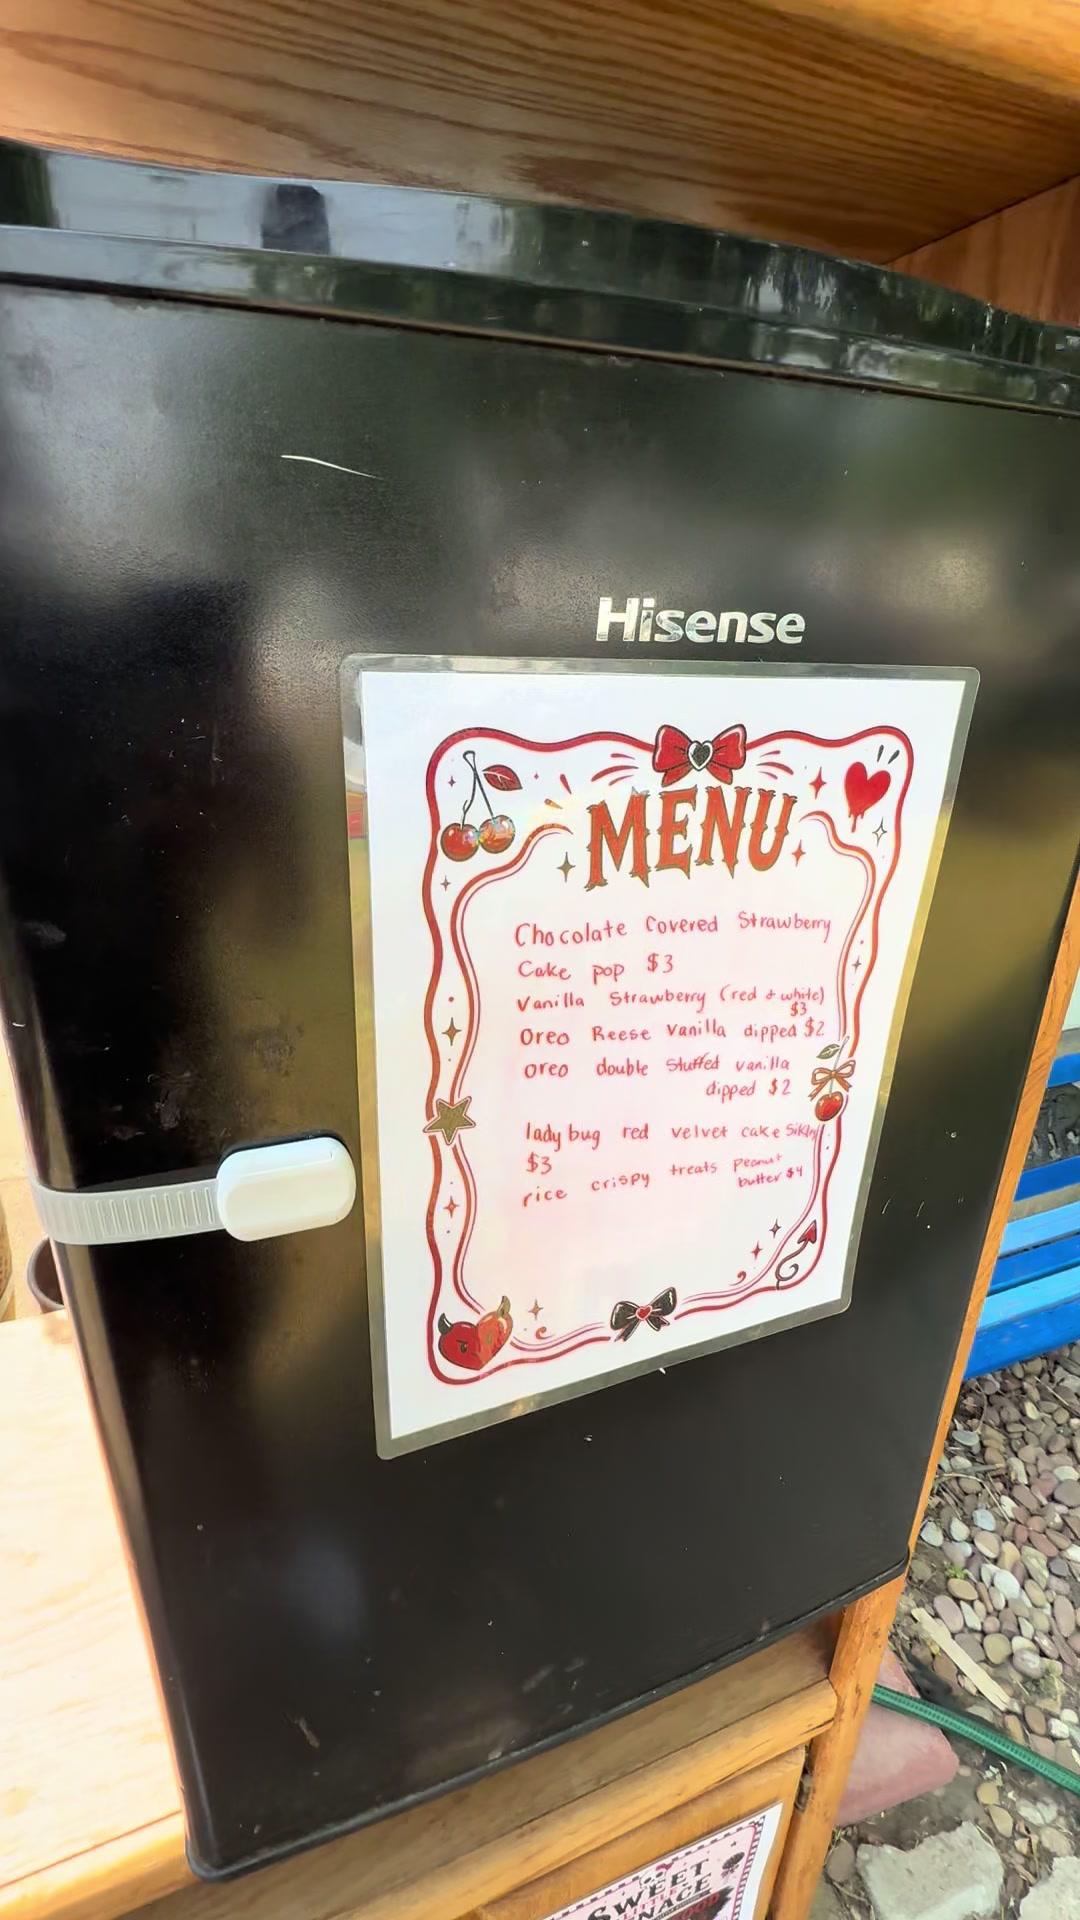 Hisense
MENU
Chocolate Covered Strawberry
Cake pop $3
Vanilla Strawberry (red + white)
$3
Oreo Reese Vanilla dipped $2
oreo double Stuffed vanilla
dipped $2
lady bug red velvet cake
$3
rice crispy treats peanut
butter $4
SWEET
LITTLE